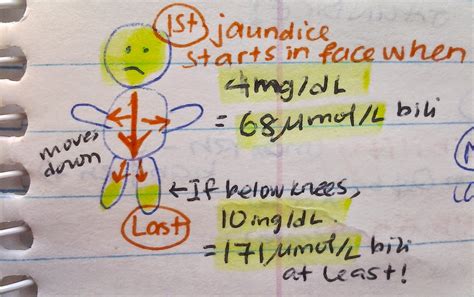 1st jaundice
starts in face when
4mg/dL
= 68 µmol/L bili
moves
down
← If below knees,
10mg/dL
= 171 µmol/L bili
at least!
Last